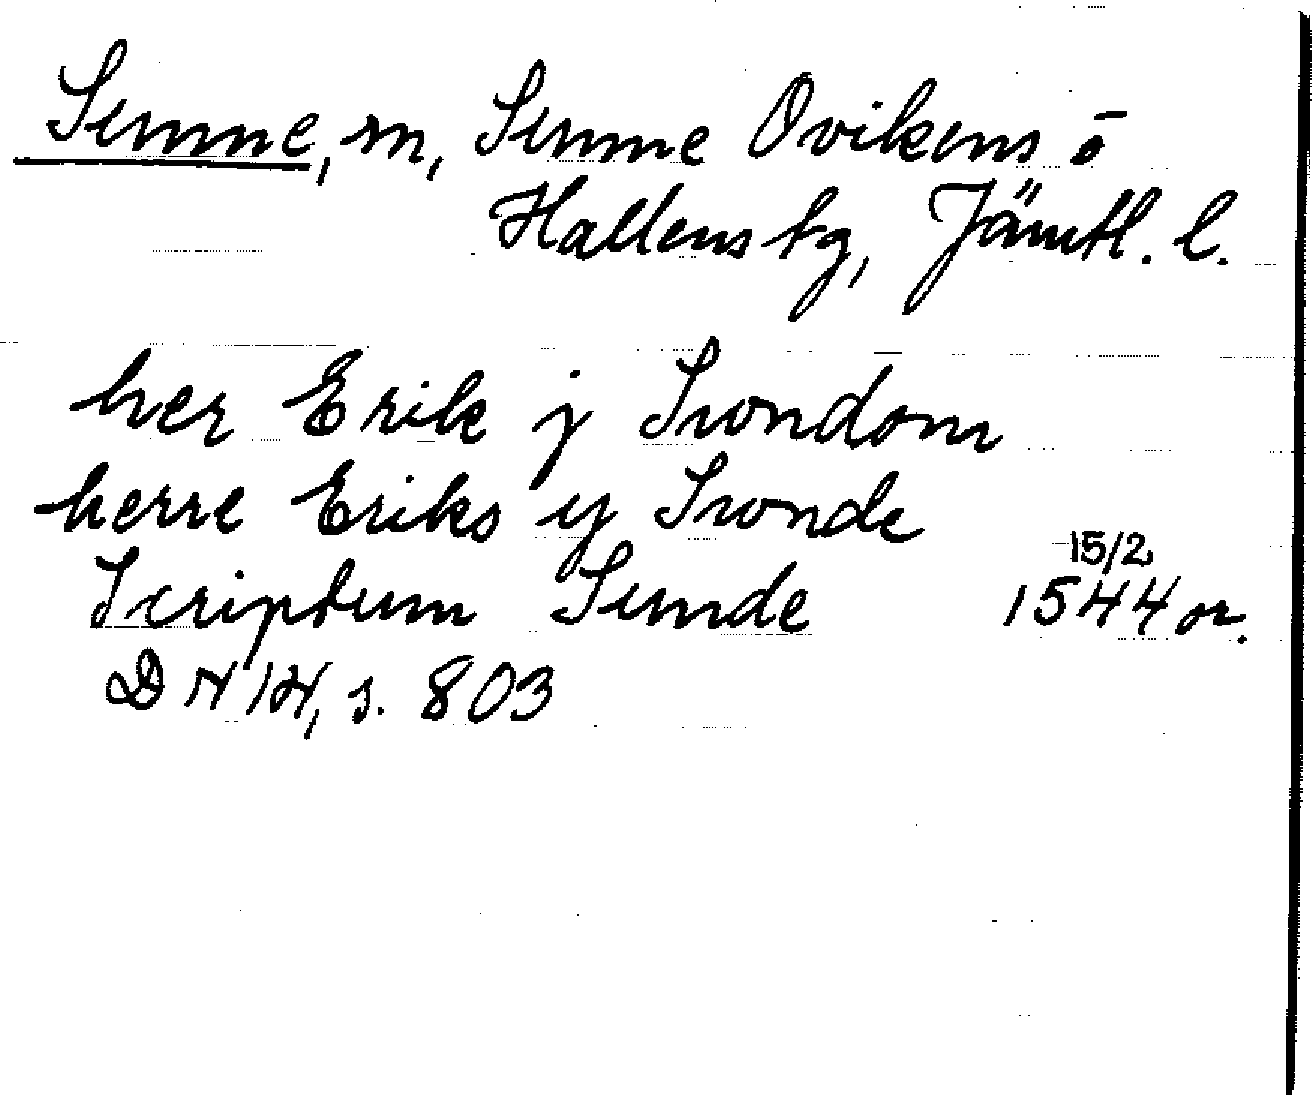 Sunne, sn, Sunne Ovikens o
Hallens tg, Jämtl. l.
her Erik j Swndom
herre Eriks y Swnde
Scriptum Sunde 15/2 1544 or.
DN 14, s. 803